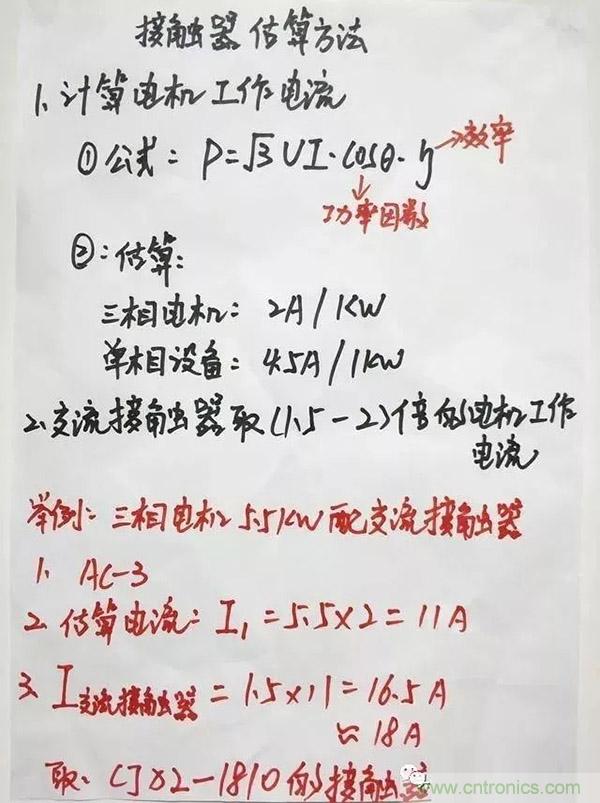 接触器估算方法
1、计算电机工作电流
①公式：P=√3UI·cosθ·η→效率
↓
功率因数
②：估算：
三相电机：2A/1KW
单相设备：4.5A/1KW
2、交流接触器取(1.5-2)倍的电机工作
电流
举例：三相电机5.5KW配交流接触器
1、AC-3
2、估算电流：I₁=5.5×2=11A
3、I交流接触器=1.5×11=16.5A
≈18A
取：CJX2-1810的接触器
www.cntronics.com